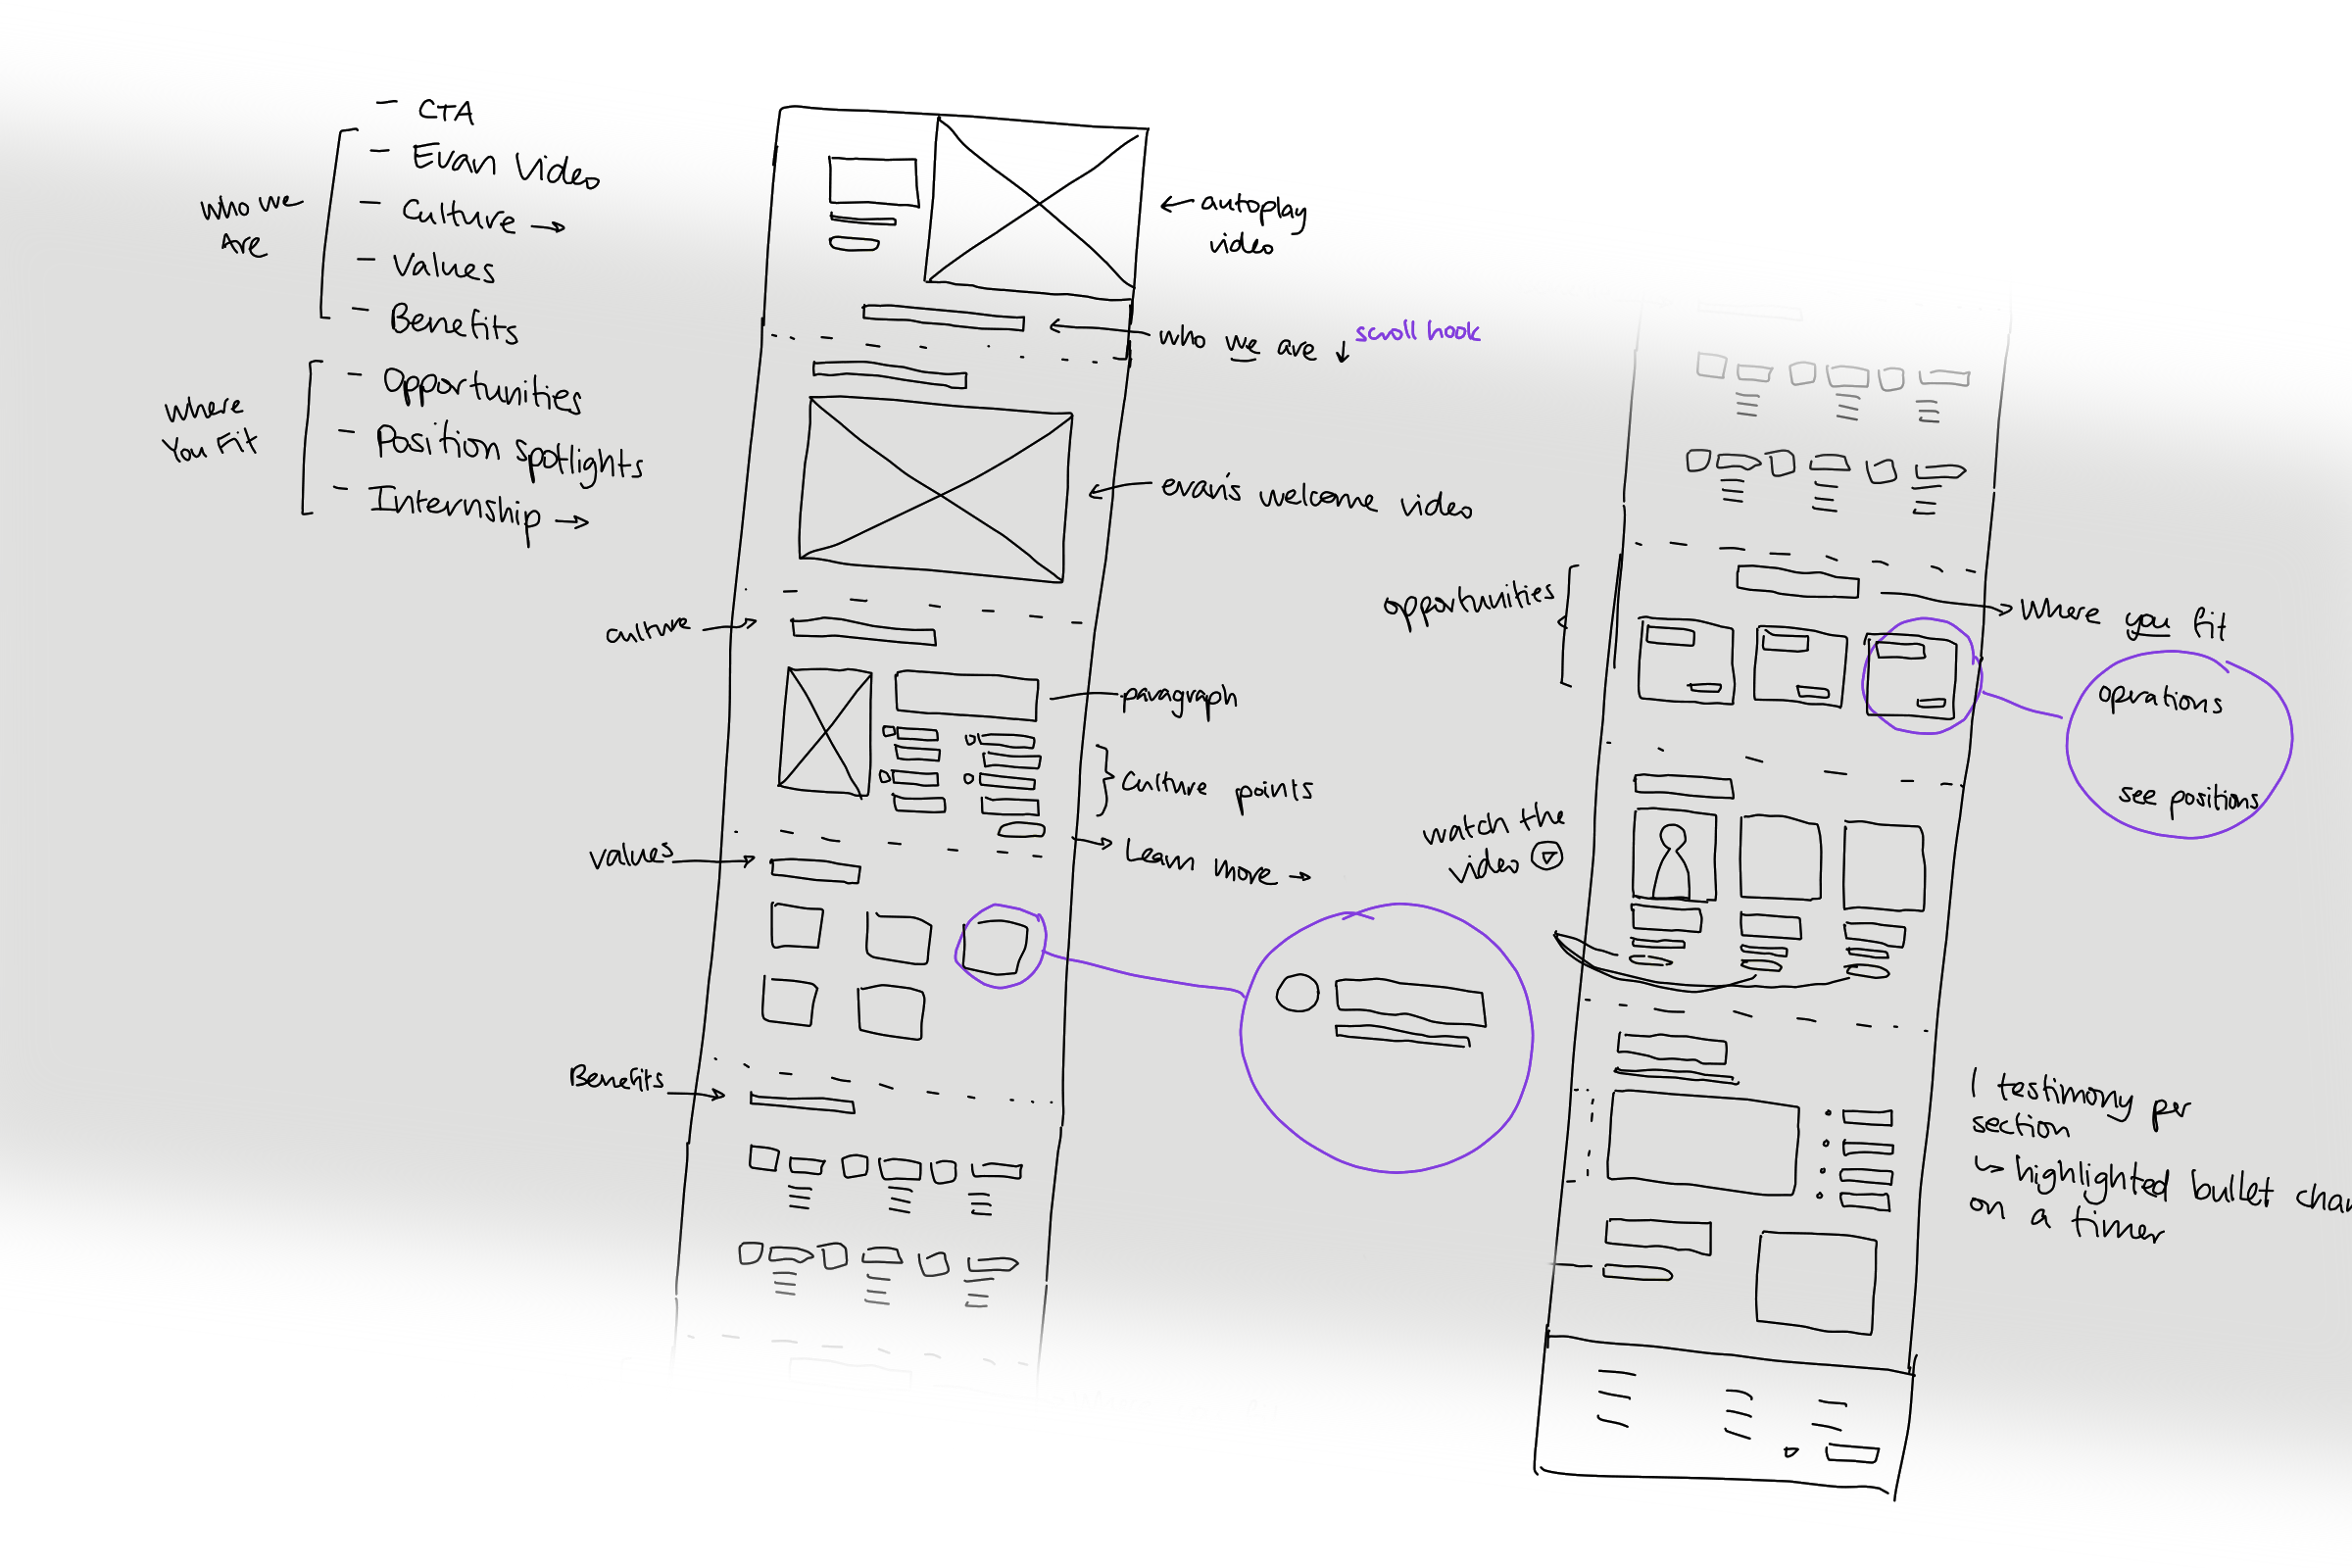 - CTA
- Evan Video
- Culture →
- Values
- Benefits
who we
Are
- Opportunities
- Position spotlights
- Internship →
where
You Fit
← autoplay
video
who we are ↓ scroll hook
evan's welcome video
culture
paragraph
culture points
Learn more →
values
Benefits
opportunities
where you fit
operations
see positions
watch the
video
1 testimony per
section
↳ highlighted bullet
on a timer